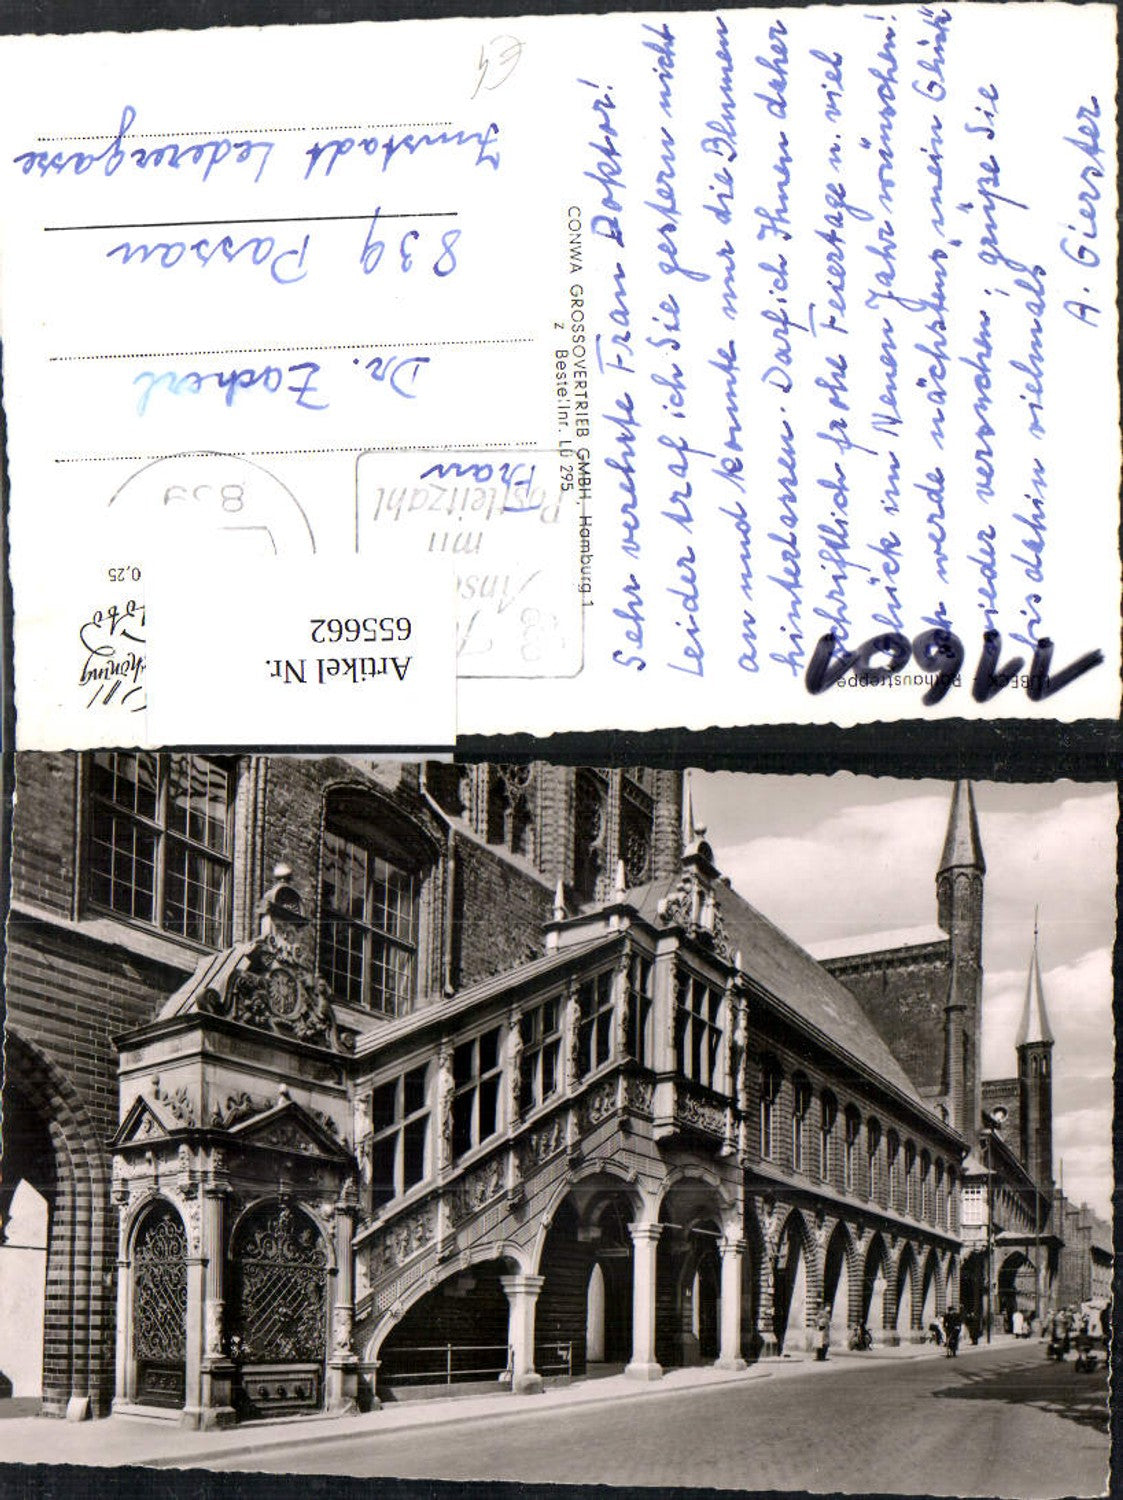 Sehr verehrte Frau Doktor!
Leider traf ich Sie gestern nicht
an und konnte nur die Blumen
hinterlassen. Darf ich Ihnen daher
schriftlich frohe Feiertage u. viel
Glück im Neuen Jahr wünschen!
Ich werde nächstens mein Glück
wieder versuchen, grüße Sie
bis dahin vielmals
A. Gierster
11601
LÜBECK - Rathaustreppe
CONWA GROSSOVERTRIEB GMBH, Hamburg 1
z Bestellnr. LÜ 295
Postleitzahl
839
Frau
Dr. Zacherl
839 Passau
Innstadt Lederergasse
€4
Artikel Nr.
655662
0,25